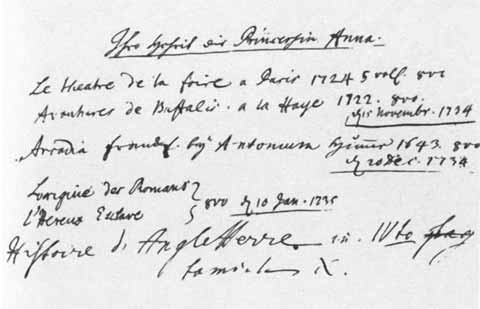 Ihro Hoheit die Princessin Anna.
Le theatre de la foire a Paris 1724 5 voll. 8vo
Avantures de Buffalis. a la Haye 1722. 8vo.
d. 15 Novembr. 1734
Arcadia by Antonium 1643. 8vo
d. 20 Dec. 1734
Lorigine des Romans
l'Hereux Esclave } 8vo d. 10 Jan. 1735
Histoire d'Angletterre. in IVto
X.